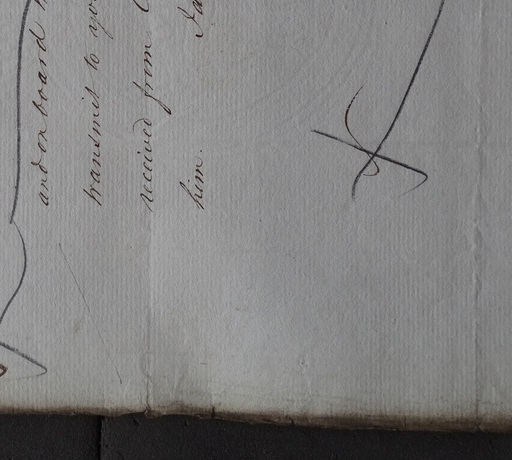 and on board
transmit to
received from
him.